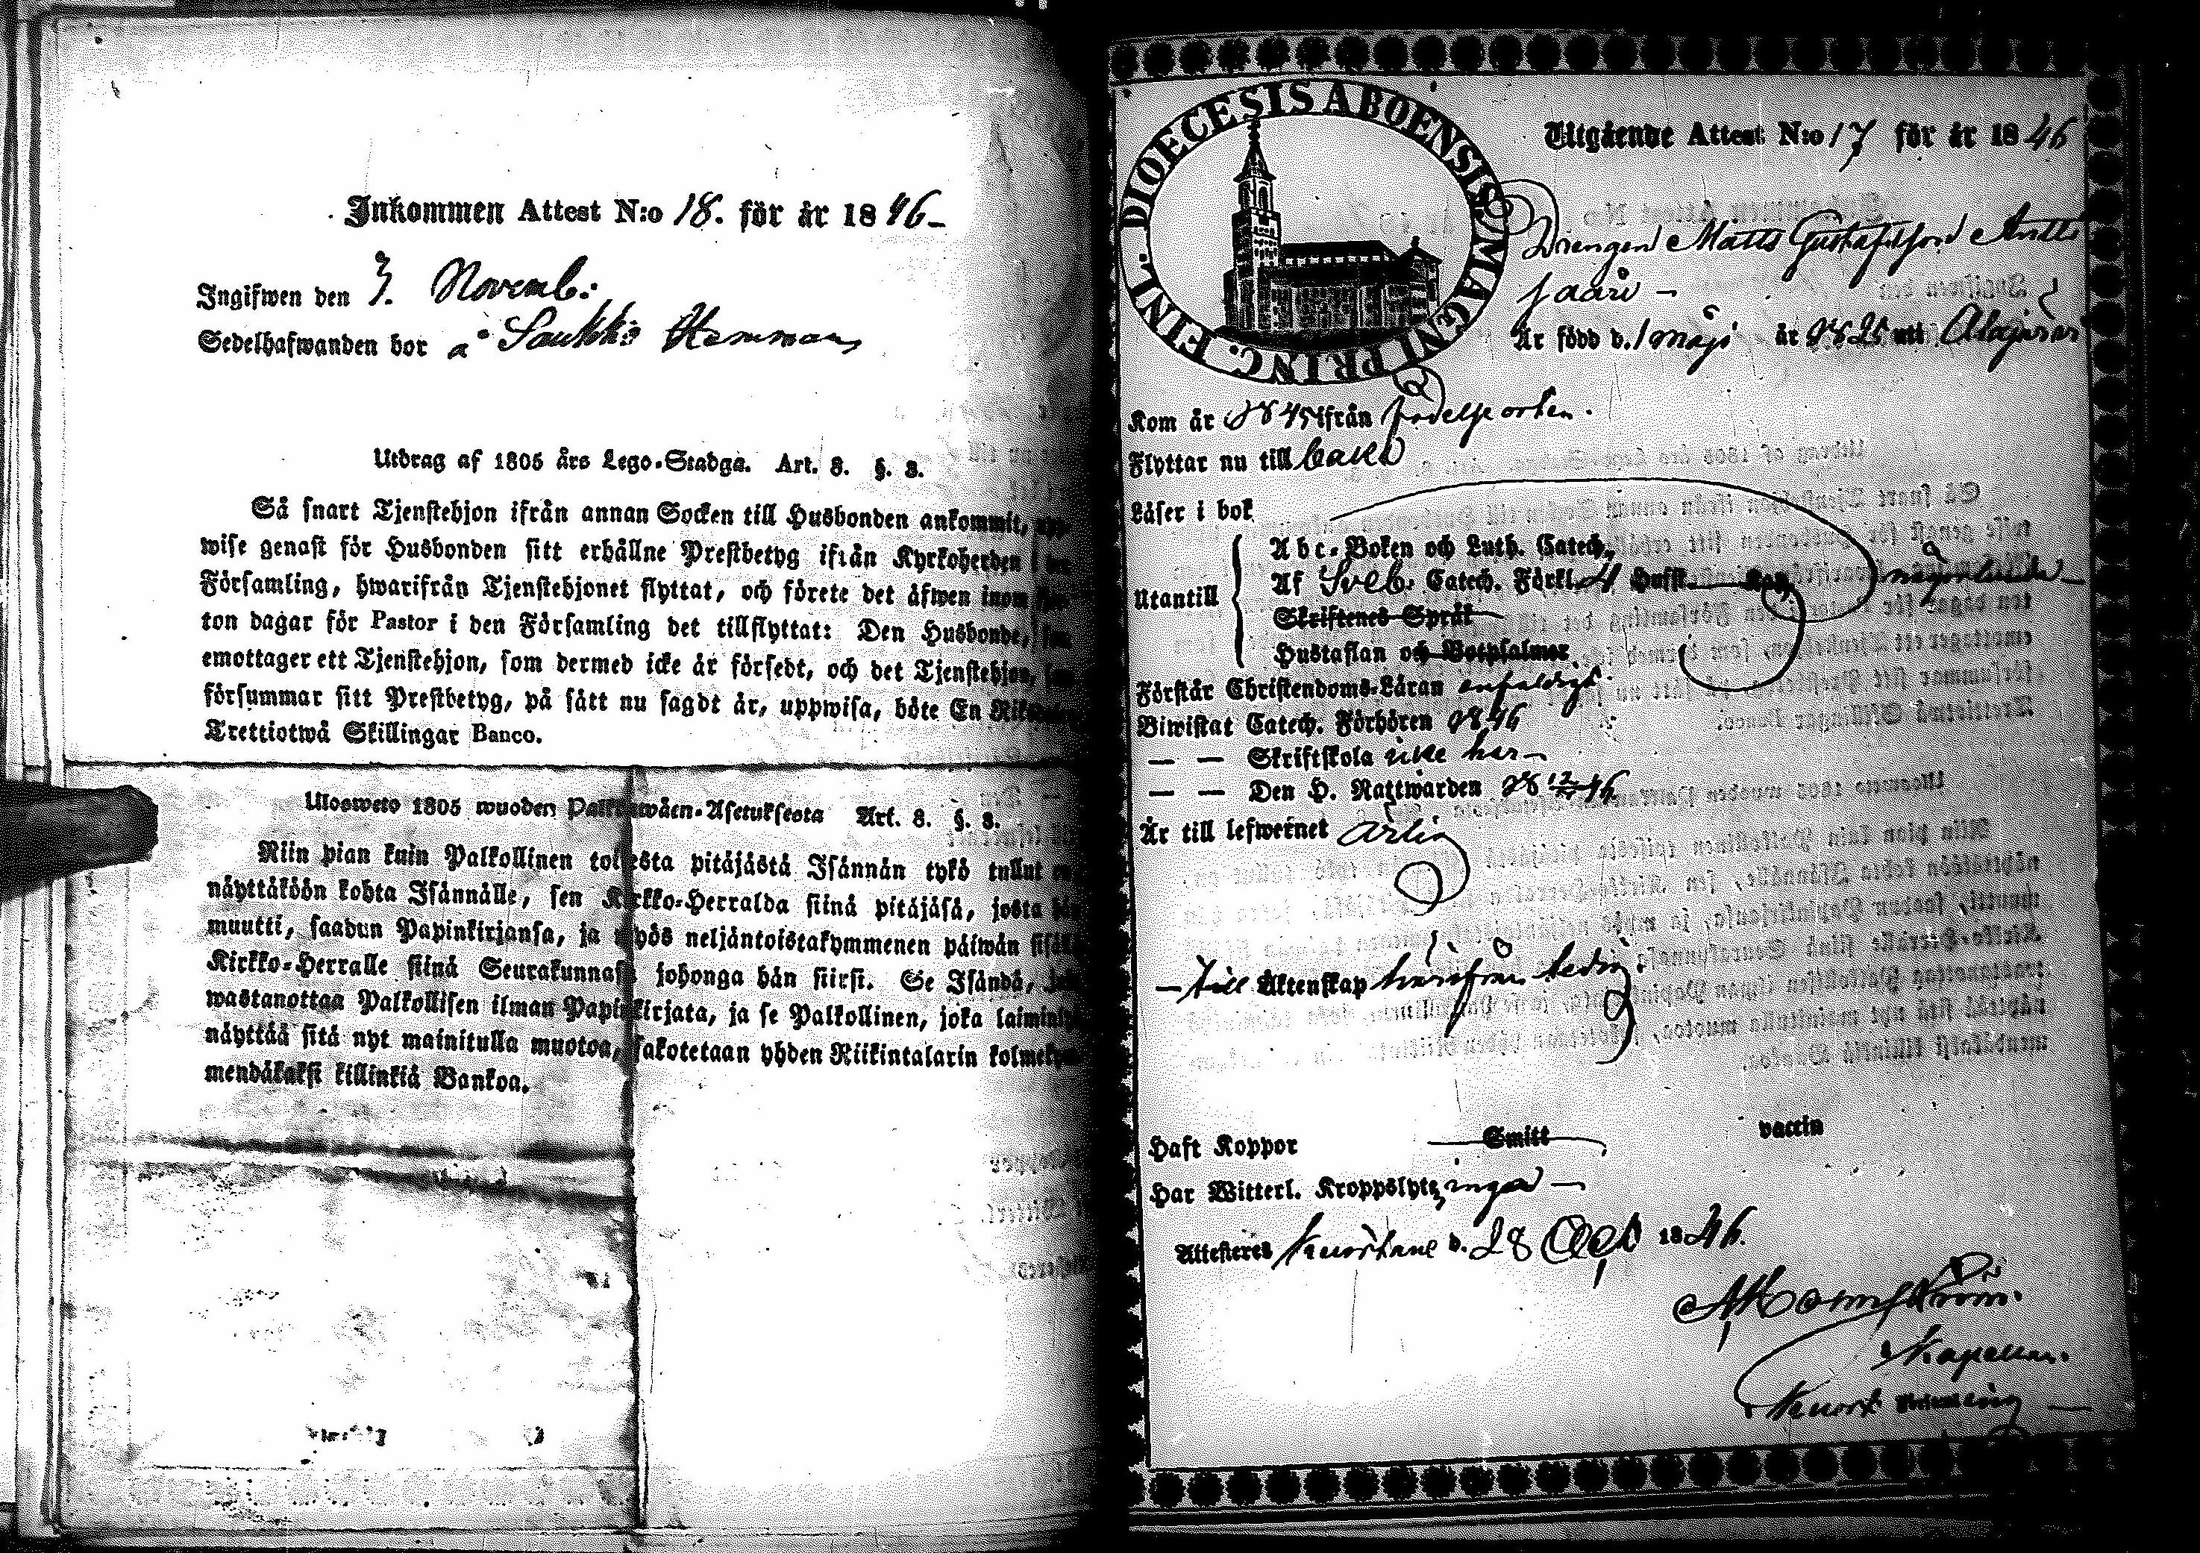 Inkommen Attest N:o 18. för år 1846
Ingifwen den 3. Novemb:
Sedelhafwanden bor å Saukko Hemman
Utdrag af 1805 års Lego-Stadga. Art. 3. §. 3.
Så snart Tjenstehjon ifrån annan Socken till Husbonden ankommit,
wise genast för Husbonden sitt erhållne Prestbetyg ifrån Kyrkoherden i
Församling, hwarifrån Tjenstehjonet flyttat, och förete det åfwen inom
ton dagar för Pastor i den Församling det tillflyttat: Den Husbonde,
emottager ett Tjenstehjon, som dermed icke är försedt, och det Tjenstehjon,
försummar sitt Prestbetyg, på sått nu sagdt är, uppwisa, böte En
Trettiotwå Skillingar Banco.
Ulosweto 1805 wuoden Asetuksesta Art. 3. §. 3.
Niin pian kuin Palkollinen toisesta pitäjästä Isännän tykö tullut
näyttäköön kohta Isännälle, sen Kirkko-Herralda siinä pitäjäsä, josta hän
muutti, saadun Papinkirjansa, ja myös neljäntoistakymmenen päiwän
Kirkko-Herralle siinä Seurakunnasa johonga hän siirsi. Se Isändä,
wastanottaa Palkollisen ilman Papinkirjata, ja se Palkollinen, joka
näyttää sitä nyt mainitulla muotoa, sakotetaan yhden Riikintalarin
mendäkaksi killinkiä Bankoa.
DIOECESIS ABOENSIS MAGNI PRINC. FINL.
Utgående Attest N:o 17 för år 1846
Drengen Matts Gustafsson
Är född d. 1 Maji år 1825 uti Alajärvi
Kom år 1845 ifrån födelseorten.
Flyttar nu till
Läser i bok
Abc-Boken och Luth. Catech.
Utantill Af Sveb. Catech. Förkl. 4 Hufst.
Skriftenes Språk
Hustaflan och Botpsalmer
någorlunda
Förstår Christendoms-Läran enfaldigt
Biwistat Catech. Förhören 1846
— — Skriftskola icke här
— — Den H. Nattwarden 18 46
Är till lefwernet ärlig
— till Äktenskap härifrån ledig.
Haft Koppor Smitt vaccin
Har Witterl. Kroppslyte, inga —
Attesteras Kuortane d. 28 1846.
Kapellan.